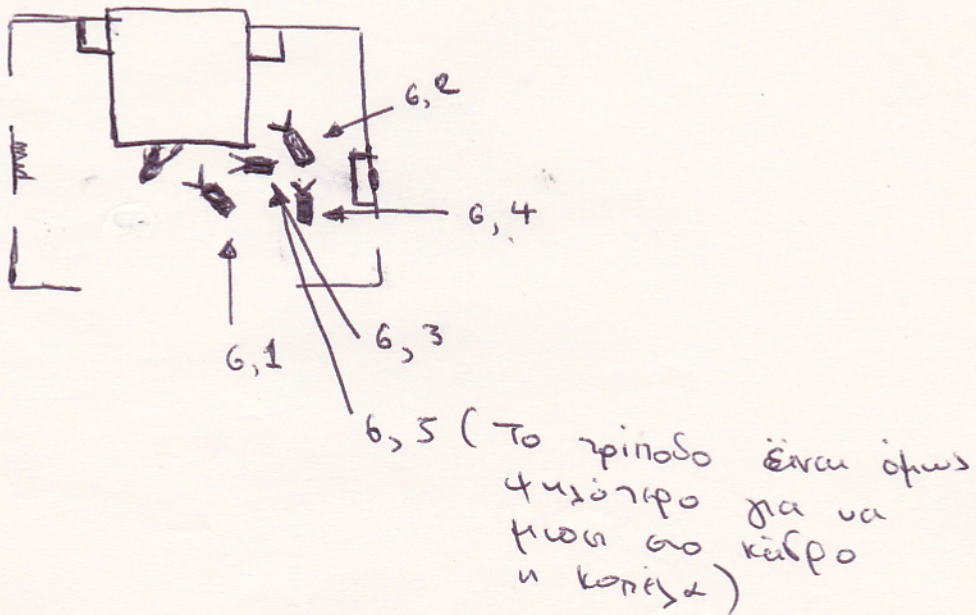 6,2
6,4
6,3
6,1
6,5 (Το τρίποδο είναι όμως
ψηλότερο για να
μπει στο κάδρο
η κοπέλα)